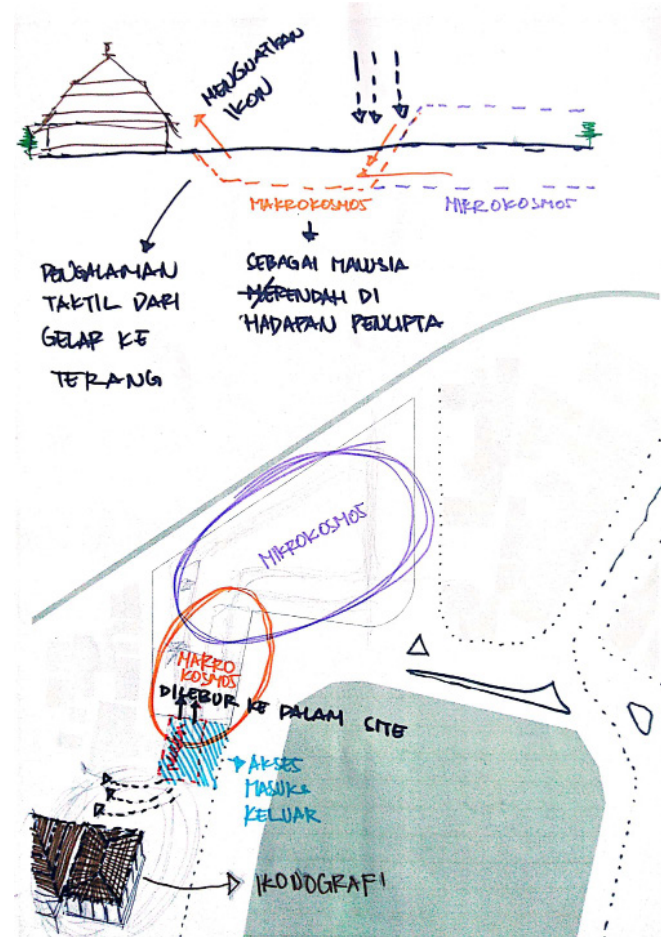 MENGUATKAN
IKON
MAKROKOSMOS
MIKROKOSMOS
PENGALAMAN
TAKTIL DARI
GELAP KE
TERANG
SEBAGAI MANUSIA
MERENDAH DI
HADAPAN PENCIPTA
MIKROKOSMOS
MAKRO
KOSMOS
DILEBUR KE DALAM SITE
AKSES
MASUK &
KELUAR
IKONOGRAFI